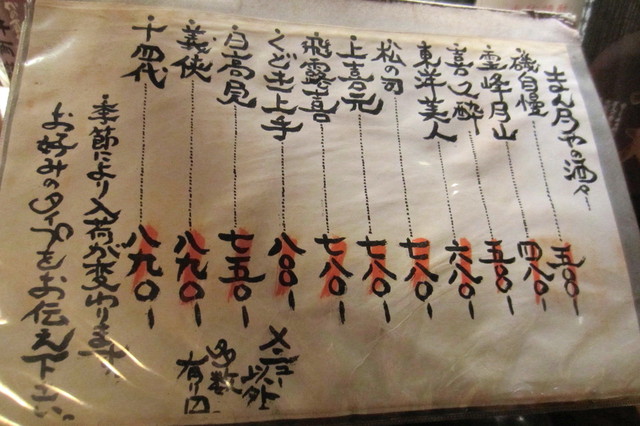 まん月やの酒々
・磯自慢 五〇〇-
・霊峰月山 四八〇-
・喜久酔 五〇〇-
・東洋美人 六八〇-
・松の司 七八〇-
・上喜元 七八〇-
・飛露喜 七八〇-
・くどき上手 八〇〇-
・日高見 七五〇-
・義侠 八九〇-
・十四代 八九〇-
メニュー以外
多数
有り〼
・季節により入荷が変わります。
お好みのタイプをお伝え下さい。